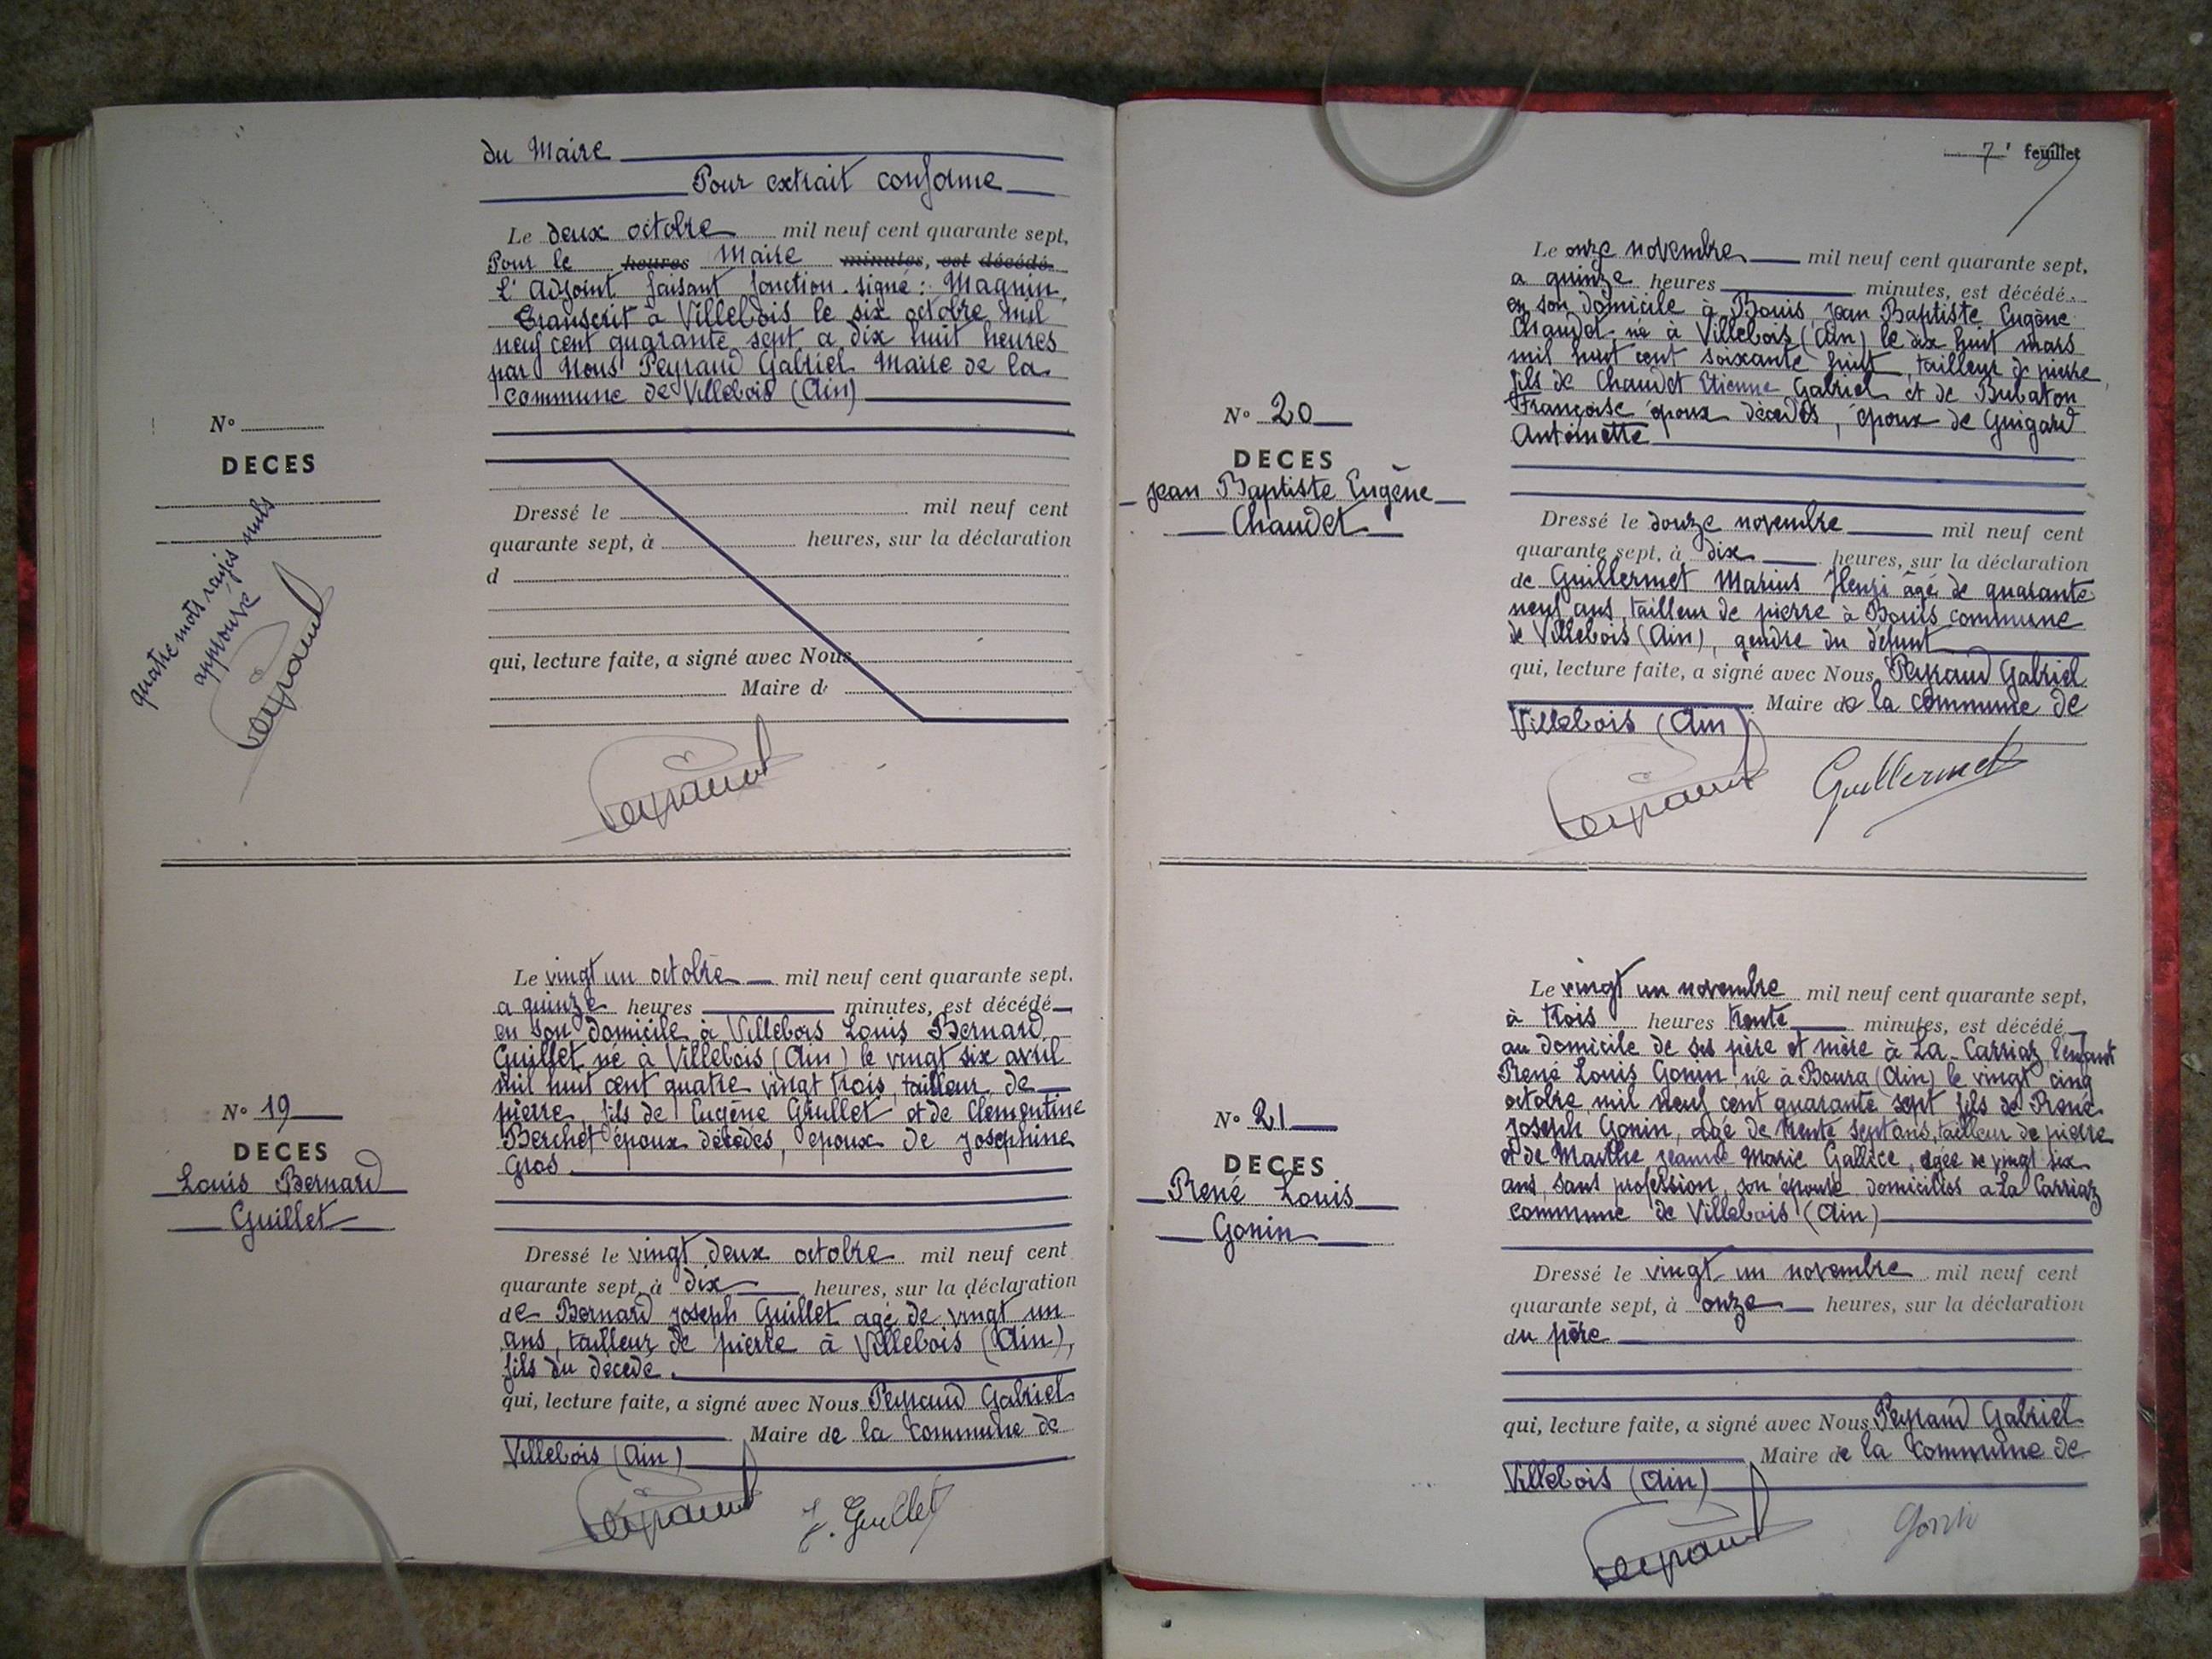 du Maire
Pour extrait conforme
Le deux octobre mil neuf cent quarante sept,
Pour le heures Maire minutes, est décédé
l'Adjoint faisant fonction. signé: Magnin.
Transcrit à Villebois le six octobre mil
neuf cent quarante sept a dix huit heures
par Nous Peyraud Gabriel Maire de la
Commune de Villebois (Ain)
N°
DECES
quatre mots rayés nuls
approuvé
Peyraud
Dressé le mil neuf cent
quarante sept, à heures, sur la déclaration
d
qui, lecture faite, a signé avec Nous
Maire d
Peyraud
N° 19
DECES
Louis Bernard
Guillet
Le vingt un octobre mil neuf cent quarante sept.
a quinze heures minutes, est décédé
en son domicile à Villebois Louis Bernard
Guillet né à Villebois (Ain) le vingt six avril
mil huit cent quatre vingt trois, tailleur de
pierre, fils de Eugène Guillet et de Clémentine
Berchet époux décédés, époux de Joséphine
Gros
Dressé le vingt deux octobre mil neuf cent
quarante sept, à dix heures, sur la déclaration
de Bernard Joseph Guillet agé de vingt un
ans, tailleur de pierre à Villebois (Ain),
fils du décédé.
qui, lecture faite, a signé avec Nous Peyraud Gabriel
Maire de la Commune de
Villebois (Ain)
Peyraud J. Guillet
7' feuillet
N° 20
DECES
Jean Baptiste Eugène
Chaudet
Le onze novembre mil neuf cent quarante sept,
a quinze heures minutes, est décédé
en son domicile à Bouis, Jean Baptiste Eugène
Chaudet né à Villebois (Ain) le dix huit mars
mil huit cent soixante huit, tailleur de pierre,
fils de Chaudet Etienne Gabriel et de Bubaton
Françoise époux décédés, époux de Guigard
Antoinette
Dressé le douze novembre mil neuf cent
quarante sept, à dix heures, sur la déclaration
de Guillermet Marius Henri âgé de quarante
neuf ans, tailleur de pierre à Bouis commune
de Villebois (Ain), gendre du défunt
qui, lecture faite, a signé avec Nous Peyraud Gabriel
Maire de la Commune de
Villebois (Ain)
Peyraud Guillermet
N° 21
DECES
René Louis
Gonin
Le vingt un novembre mil neuf cent quarante sept,
à trois heures trente minutes, est décédé
au domicile de ses père et mère à La Carriaz l'enfant
René Louis Gonin, né à Bourg (Ain) le vingt cinq
octobre mil neuf cent quarante sept fils de René
Joseph Gonin, agé de trente sept ans, tailleur de pierre
et de Marthe Jeanne Marie Gallice, agée de vingt six
ans, sans profession, son épouse domiciliés a La Carriaz
commune de Villebois (Ain)
Dressé le vingt un novembre mil neuf cent
quarante sept, à onze heures, sur la déclaration
du père
qui, lecture faite, a signé avec Nous Peyraud Gabriel
Maire de la Commune de
Villebois (Ain)
Peyraud Gonin